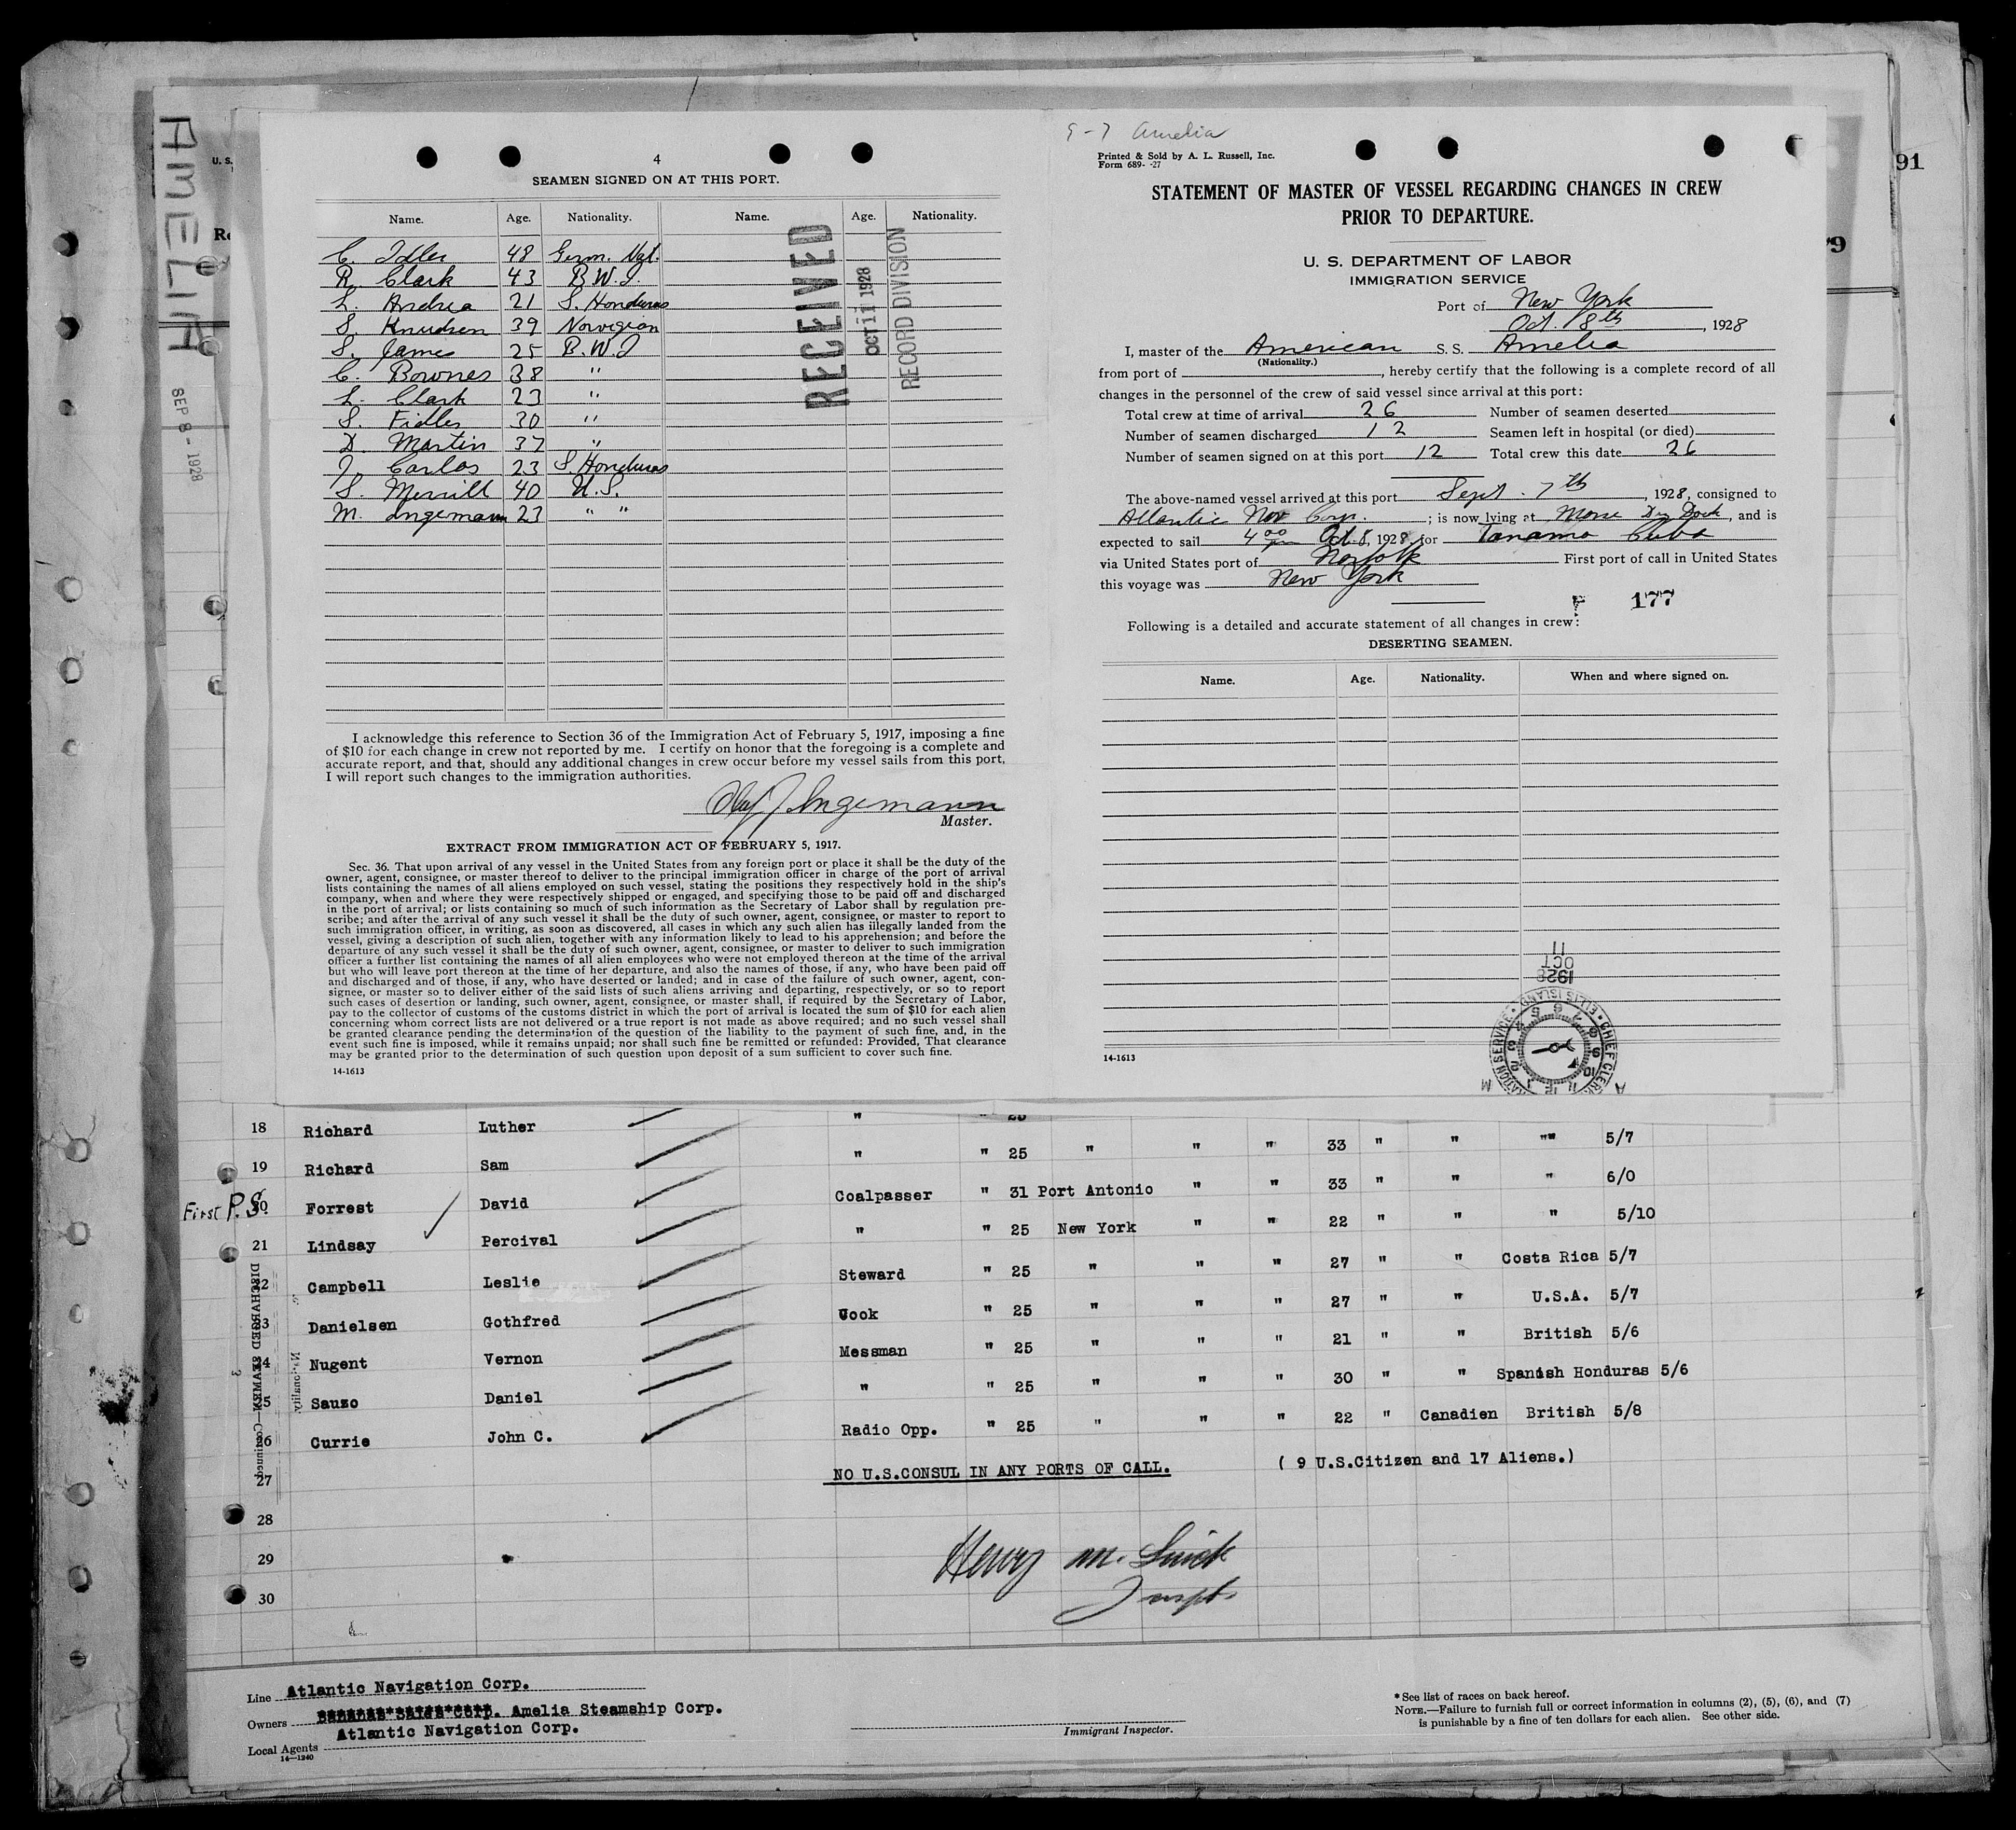 AMELIA
SEP 8 - 1928
U. S.
91
79
4
SEAMEN SIGNED ON AT THIS PORT.
Name. Age. Nationality. Name. Age. Nationality.
C. Idler 48 Germ. Nat.
R. Clark 43 B.W.I.
L. Andrea 21 S. Honduras
S. Knudsen 39 Norvegian
S. James 25 B.W.I
C. Bownes 38 "
L. Clark 23 "
S. Fidler 30 "
D. Martin 37 "
J. Carlos 23 S. Honduras
S. Merrill 40 U.S.
M. Ingemann 23 " "
RECEIVED
OCT 11 1928
RECORD DIVISION
I acknowledge this reference to Section 36 of the Immigration Act of February 5, 1917, imposing a fine
of $10 for each change in crew not reported by me. I certify on honor that the foregoing is a complete and
accurate report, and that, should any additional changes in crew occur before my vessel sails from this port,
I will report such changes to the immigration authorities.
Ingemann
Master.
EXTRACT FROM IMMIGRATION ACT OF FEBRUARY 5, 1917.
Sec. 36. That upon arrival of any vessel in the United States from any foreign port or place it shall be the duty of the
owner, agent, consignee, or master thereof to deliver to the principal immigration officer in charge of the port of arrival
lists containing the names of all aliens employed on such vessel, stating the positions they respectively hold in the ship's
company, when and where they were respectively shipped or engaged, and specifying those to be paid off and discharged
in the port of arrival; or lists containing so much of such information as the Secretary of Labor shall by regulation pre-
scribe; and after the arrival of any such vessel it shall be the duty of such owner, agent, consignee, or master to report to
such immigration officer, in writing, as soon as discovered, all cases in which any such alien has illegally landed from the
vessel, giving a description of such alien, together with any information likely to lead to his apprehension; and before the
departure of any such vessel it shall be the duty of such owner, agent, consignee, or master to deliver to such immigration
officer a further list containing the names of all alien employees who were not employed thereon at the time of the arrival
but who will leave port thereon at the time of her departure, and also the names of those, if any, who have been paid off
and discharged and of those, if any, who have deserted or landed; and in case of the failure of such owner, agent, con-
signee, or master so to deliver either of the said lists of such aliens arriving and departing, respectively, or so to report
such cases of desertion or landing, such owner, agent, consignee, or master shall, if required by the Secretary of Labor,
pay to the collector of customs of the customs district in which the port of arrival is located the sum of $10 for each alien
concerning whom correct lists are not delivered or a true report is not made as above required; and no such vessel shall
be granted clearance pending the determination of the question of the liability to the payment of such fine, and, in the
event such fine is imposed, while it remains unpaid; nor shall such fine be remitted or refunded: Provided, That clearance
may be granted prior to the determination of such question upon deposit of a sum sufficient to cover such fine.
14-1613
9-7 Amelia
Printed & Sold by A. L. Russell, Inc.
Form 689- -27
STATEMENT OF MASTER OF VESSEL REGARDING CHANGES IN CREW
PRIOR TO DEPARTURE.
U. S. DEPARTMENT OF LABOR
IMMIGRATION SERVICE
Port of New York
Oct. 8th, 1928
I, master of the American S. S. Amelia
(Nationality.)
from port of , hereby certify that the following is a complete record of all
changes in the personnel of the crew of said vessel since arrival at this port:
Total crew at time of arrival 26 Number of seamen deserted
Number of seamen discharged 12 Seamen left in hospital (or died)
Number of seamen signed on at this port 12 Total crew this date 26
The above-named vessel arrived at this port Sept. 7th, 1928, consigned to
Atlantic Nav Corp. ; is now lying at Morse Dry Dock, and is
expected to sail 4 00 pm Oct. 8, 1928, for Tanamo Cuba
via United States port of Norfolk First port of call in United States
this voyage was New York
F 177
Following is a detailed and accurate statement of all changes in crew:
DESERTING SEAMEN.
Name. Age. Nationality. When and where signed on.
OCT 11 1928
CHIEF CLERK ELLIS ISLAND
14-1613
18 Richard Luther " " 25
19 Richard Sam " " 25 " " " 33 " " "" 5/7
First P.S. 20 Forrest David Coalpasser " 31 Port Antonio " " 33 " " " 6/0
21 Lindsay Percival " " 25 New York " " 22 " " " 5/10
22 Campbell Leslie Steward " 25 " " " 27 " " Costa Rica 5/7
23 Danielsen Gothfred Cook " 25 " " " 27 " " U.S.A. 5/7
24 Nugent Vernon Messman " 25 " " " 21 " " British 5/6
25 Sauzo Daniel " " 25 " " " 30 " " Spanish Honduras 5/6
26 Currie John C. Radio Opp. " 25 " " " 22 " Canadien British 5/8
27 NO U.S.CONSUL IN ANY PORTS OF CALL. ( 9 U.S.Citizen and 17 Aliens.)
28
29
30
DISCHARGED SEAMEN—Continued
3
Nationality.
Henry M.
Inspt.
Line Atlantic Navigation Corp.
Owners Amelia Steamship Corp.
Atlantic Navigation Corp.
Local Agents
14—1240
Immigrant Inspector.
* See list of races on back hereof.
NOTE.—Failure to furnish full or correct information in columns (2), (5), (6), and (7)
is punishable by a fine of ten dollars for each alien. See other side.